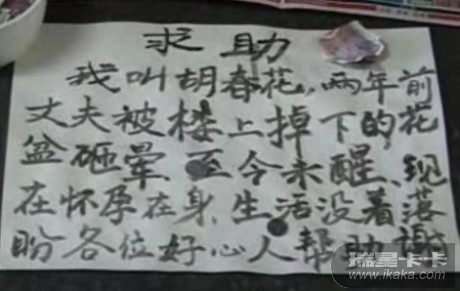 求助
我叫胡春花,两年前
丈夫被楼上掉下的花
盆砸晕、至今未醒、现
在怀孕在身、生活没着落
盼各位好心人帮助 谢
瑞星卡卡
www.ikaka.com